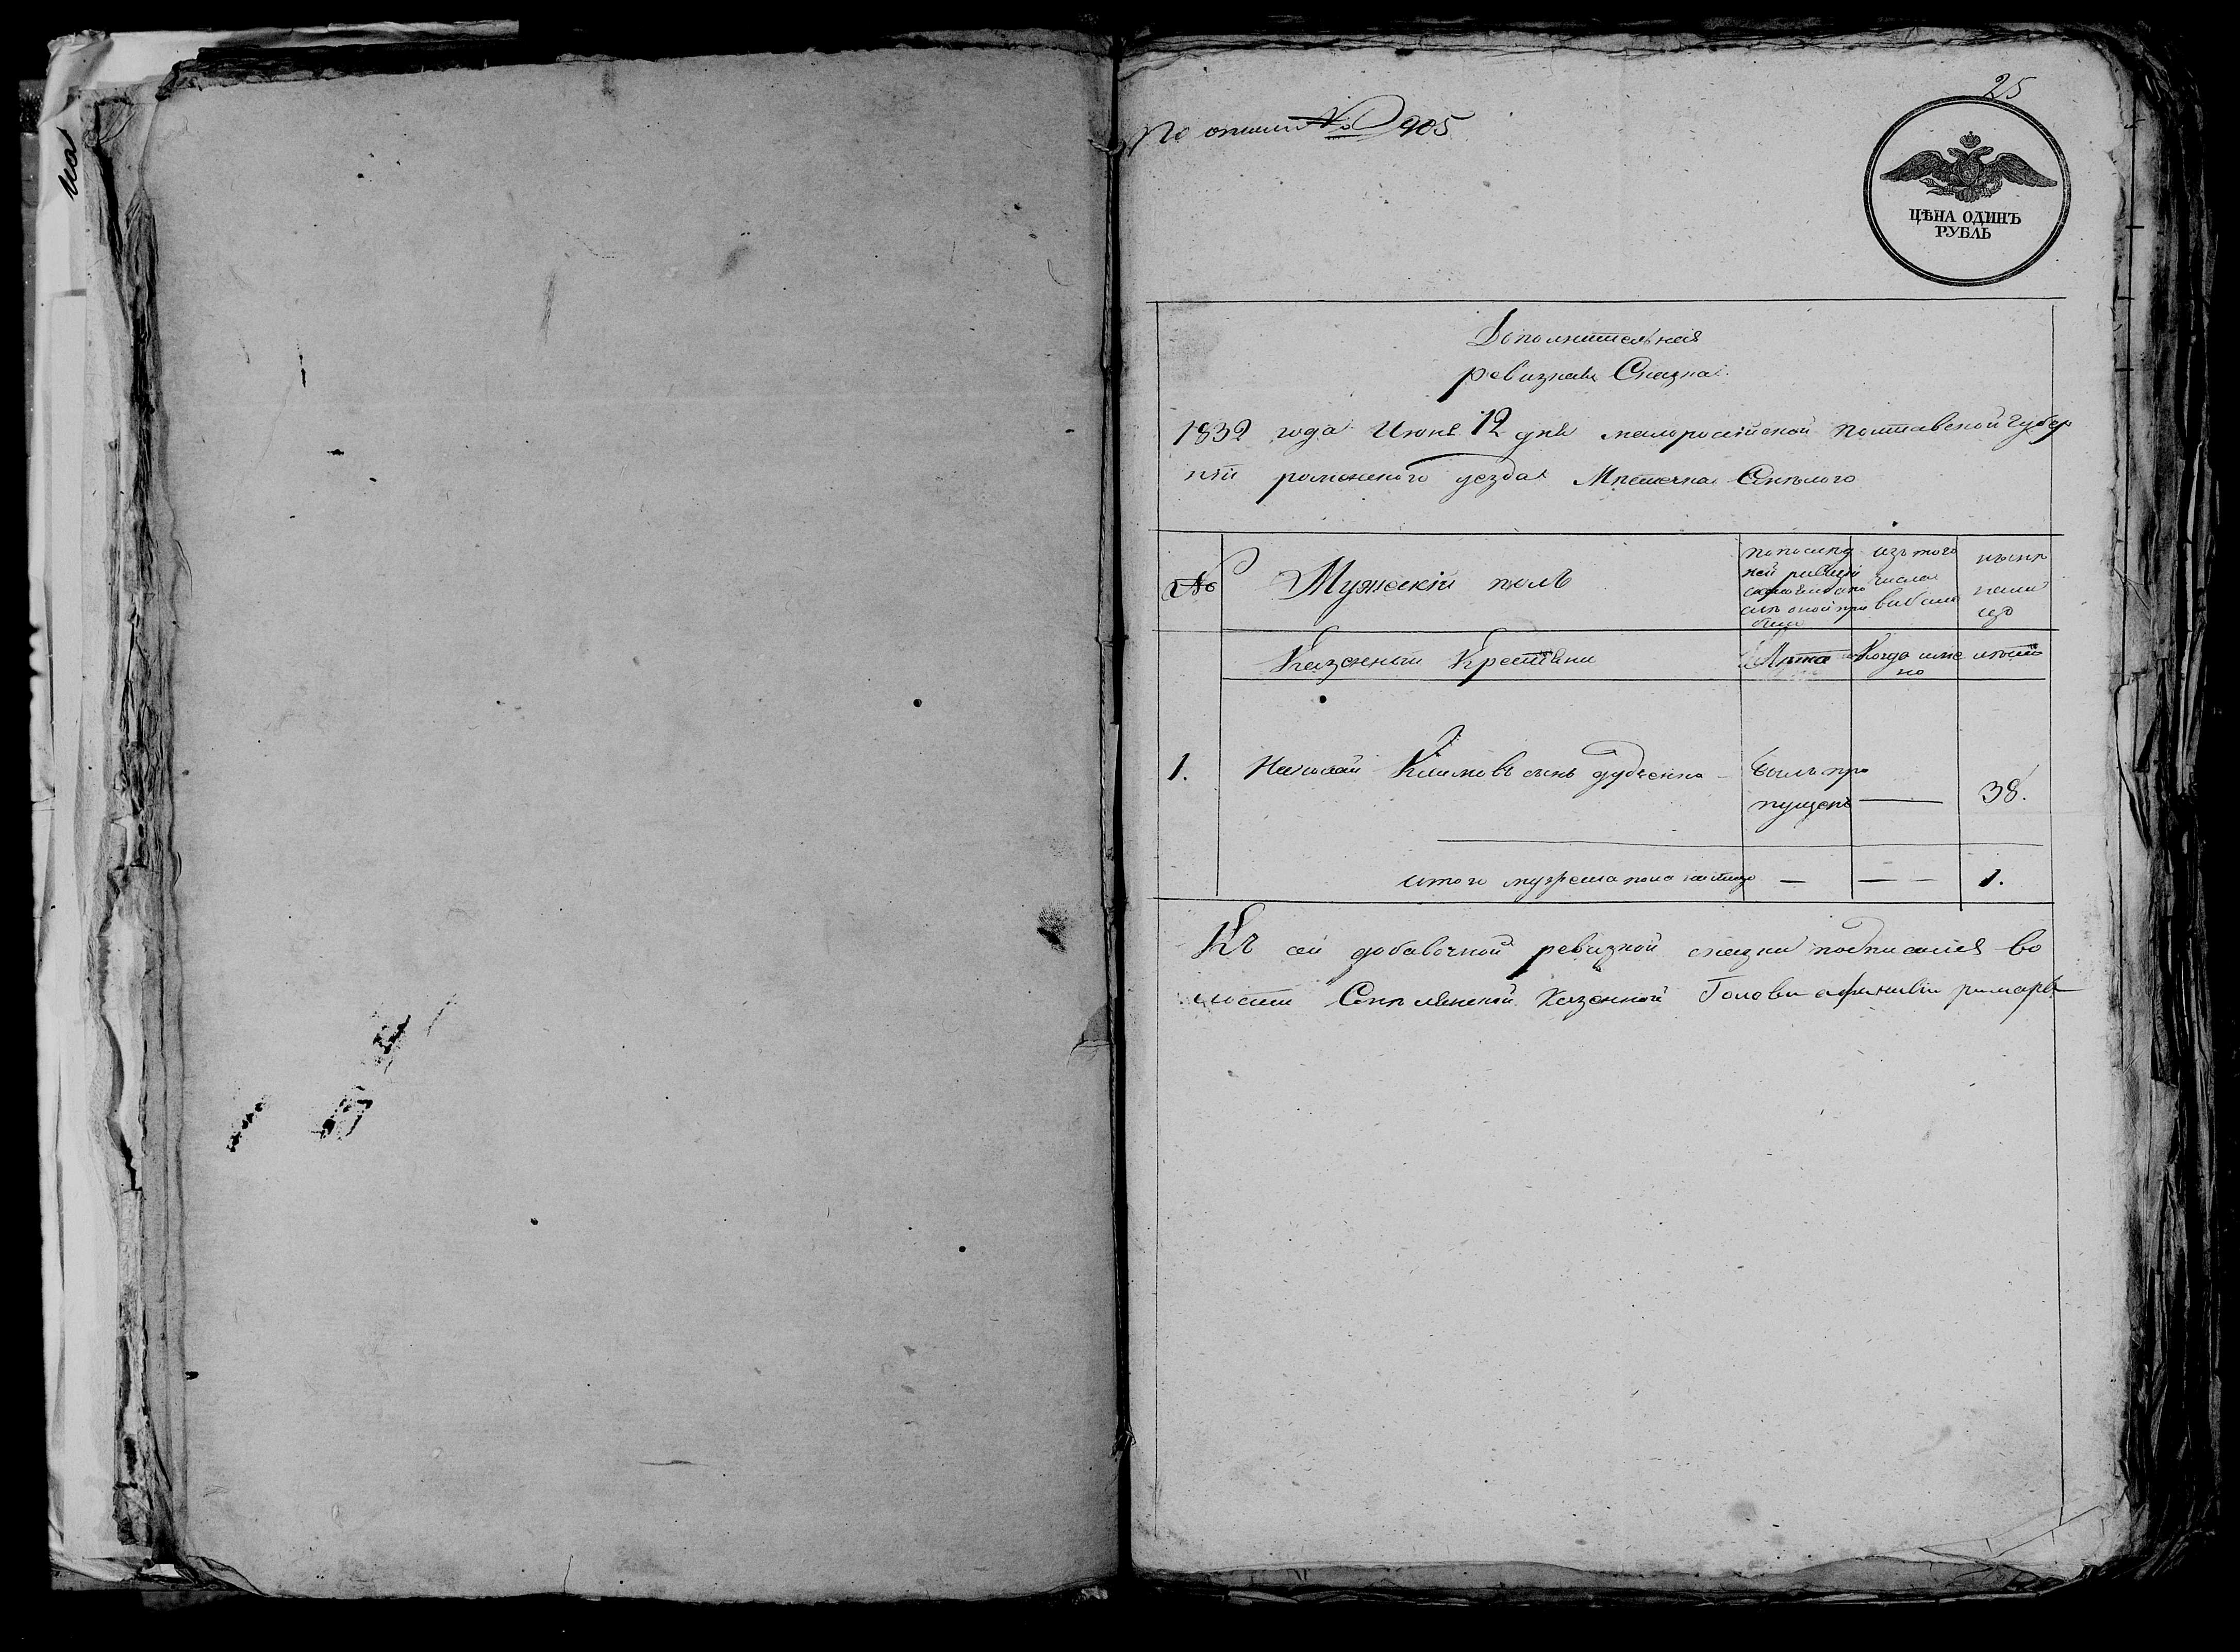 25
По описи № 905
ЦѢНА ОДИНЪ
РУБЛЬ
Дополнительная
ревизная Сказка
1832 года Июня 12 дня малоросiйской полтавской губер
нiи роменского уезда Местечка Смелого
№ Мужескiй полъ
по послед
ней ревизiи
изъ того
числа
выбыло
ныне
на ли
цо
Казенныи Крестяни
Лета
Когда имен
но
лета
1. Николай Климовъ сынъ дудченко
былъ про
пущенъ — 38.
итого мужеска пола на лицо — — — 1.
Къ сей добавочной ревизной сказки подписался во
лости Смелянской Казенной Голова римаръ